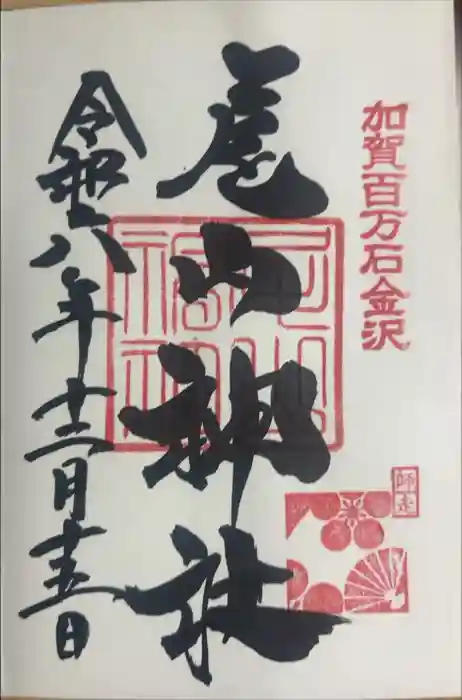 加賀百万石金沢
師走
尾山神社
令和六年十二月十五日